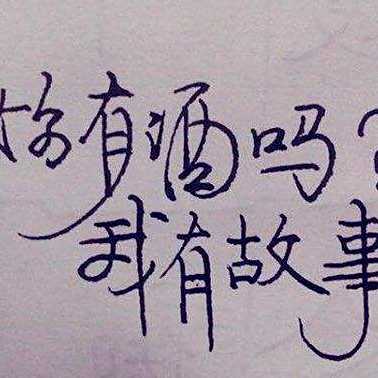 你有酒吗?
我有故事